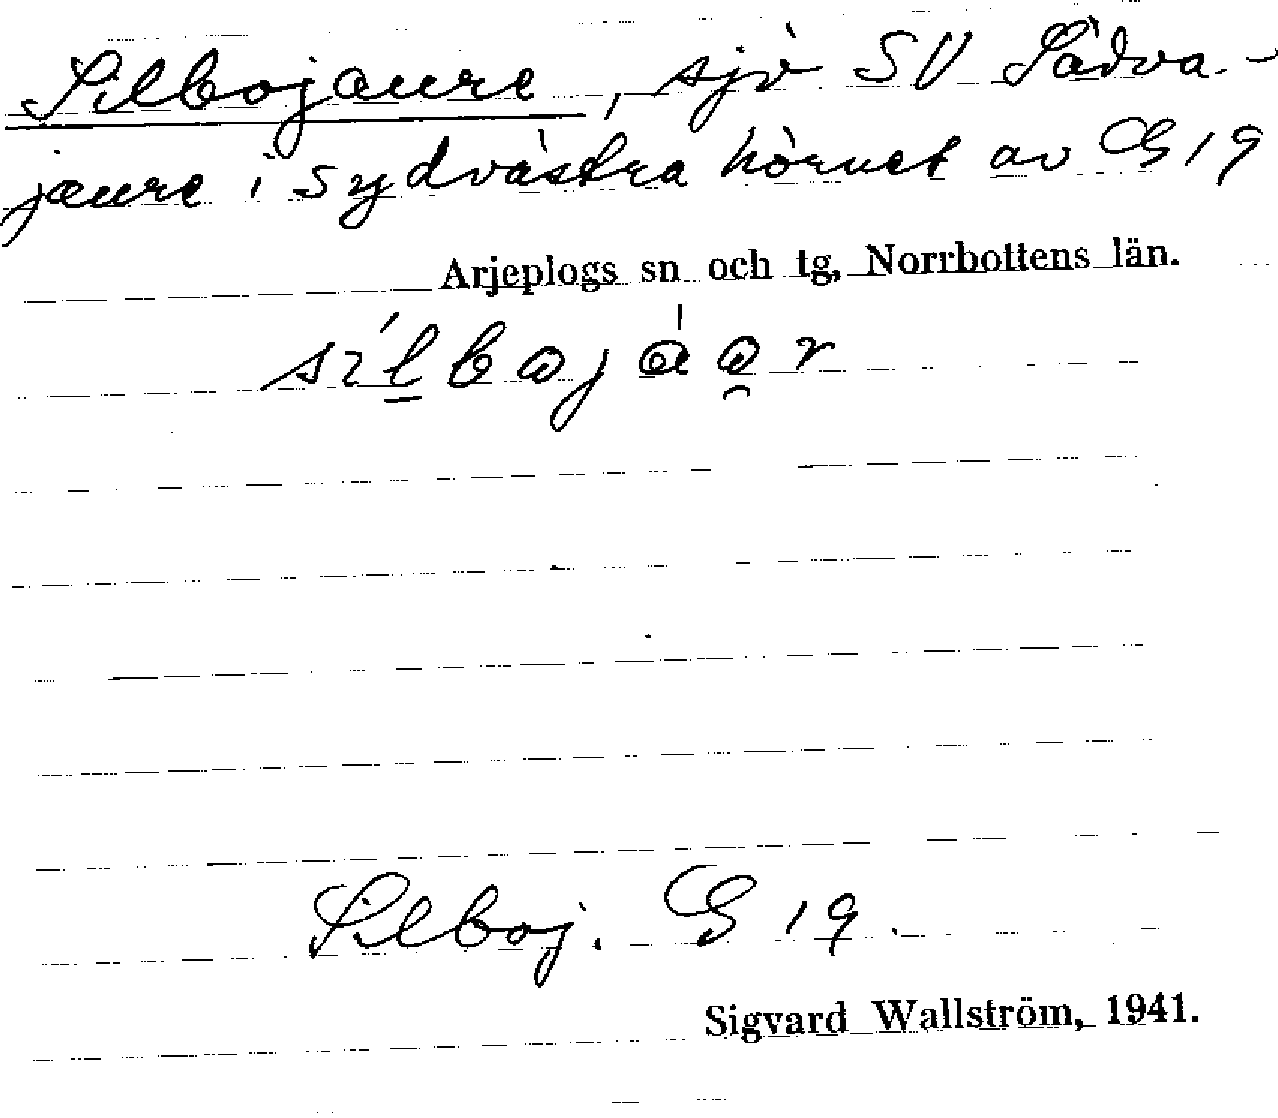 Silbojaure, sjö SV Sädva-
jaure i sydvästra hörnet av G 19
Arjeplogs sn och tg, Norrbottens län.
Silboj. G 19.
Sigvard Wallström, 1941.